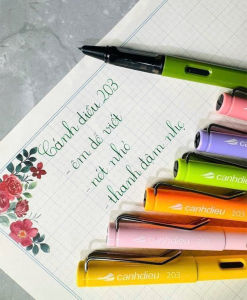 Cánh diều 203
- êm dễ viết
- nét nhỏ
- thanh đậm nhẹ
canhdieu
canhdieu
canhdieu
canhdieu
canhdieu 203